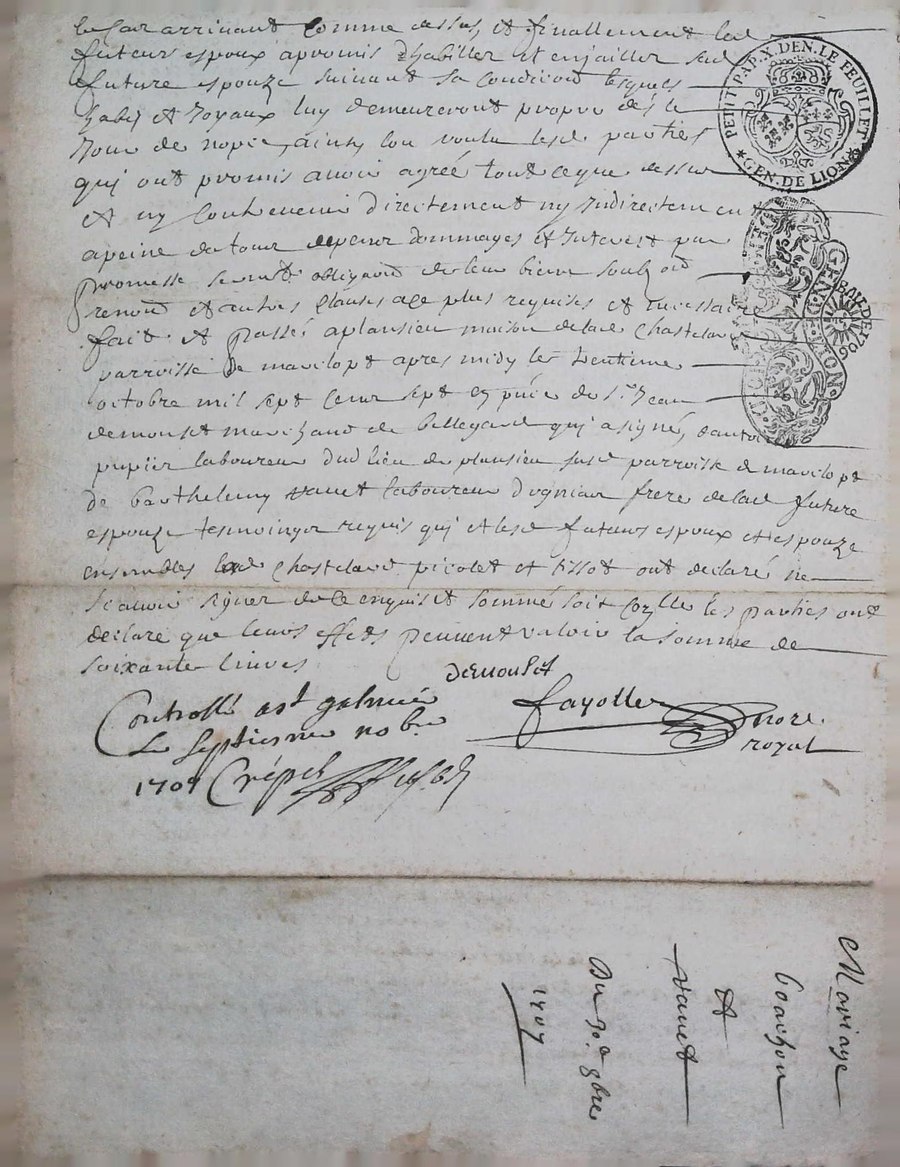 le cas arrivant comme dessus, et finallement led
futeurs espoux a promis d'habiller et enjailler sad
future espouze suivant sa condition lesquels
habis et Joyaux luy demeureront propre dès le
Jour de nopce, ainsy lon voulu lesd parties
qui ont promis avoir agréé tout ce que dessus
Et ny contrevenir directement ny Indirectem en
a peine de tous depens dommages et Interest par
promesse serment obligaōn de leur biens soubzōn
renonō et autres clauses a ce plus requises et necessaire
fait et passé a plansieu maison delad Chastelard
parroisse de marclopt apres midy le trentieme
octobre mil sept cent sept en pnce de Sr Jean
demoulet marchand de bellegarde qui a signé, dantoi
pupier laboureur dud lieu de plansieu susd parroisse de marclopt
de barthelemy vanet laboureur frere delad future
espouze tesmoingts requis qui et lesd futeurs espoux et espouze
ensembles lesd Chastelard picolet et tissot ont declaré ne
scavoir signer de ce enquis et sommé soit les parties ont
declare que leurs effets peuvent valoir la somme de
soixante livres
demoulet
fayolle nore.
royal
Controllé a st galmier
Le septiesme nobre
1707 Crépet
PETIT PAP. X. DEN. LE FEUILLET
*GEN. DE LION*
GEN. DE LION
Mariage
Et
vanet
Du 30e 8bre
1707